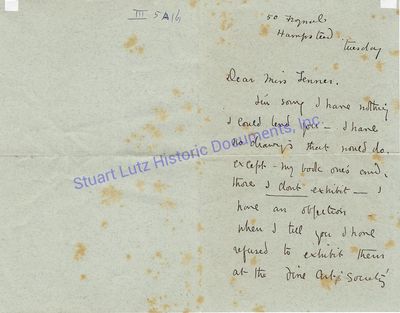 III 5A16
50 Frognal
Hampstead
Tuesday
Dear Miss Jenner.
I'm sorry I have nothing
I could lend you – I have
no drawgs that would do.
except – my book ones and,
those I dont exhibit – I
have an objection
when I tell you I have
refused to exhibit them
at the Fine Arts Society
Stuart Lutz Historic Documents, Inc.